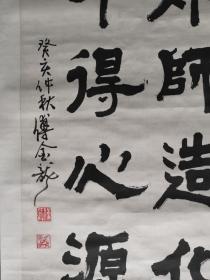 師造化
中得心源
癸亥仲秋傅金龍